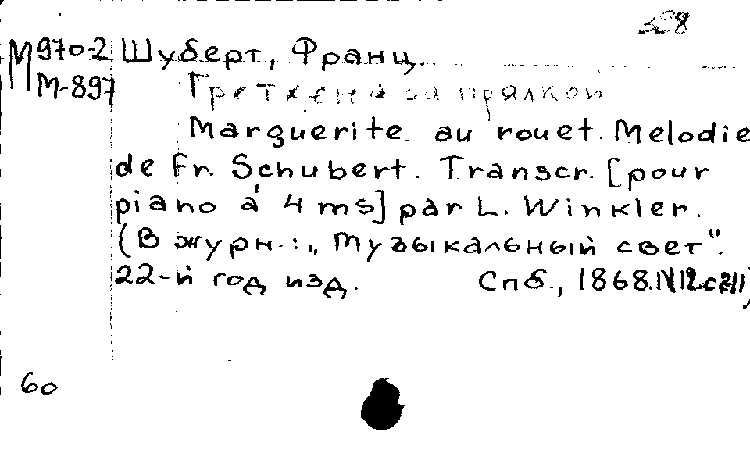 М 970-2 Шуберт, Франц.
М-897 Гретхен за прялкой
Marguerite au rouet. Melodie
de Fr. Schubert. Transcr. [pour
piano à 4 ms] par L. Winkler.
(В журн.: „Музыкальный свет".
22-й год изд. Спб., 1868. N12.
60